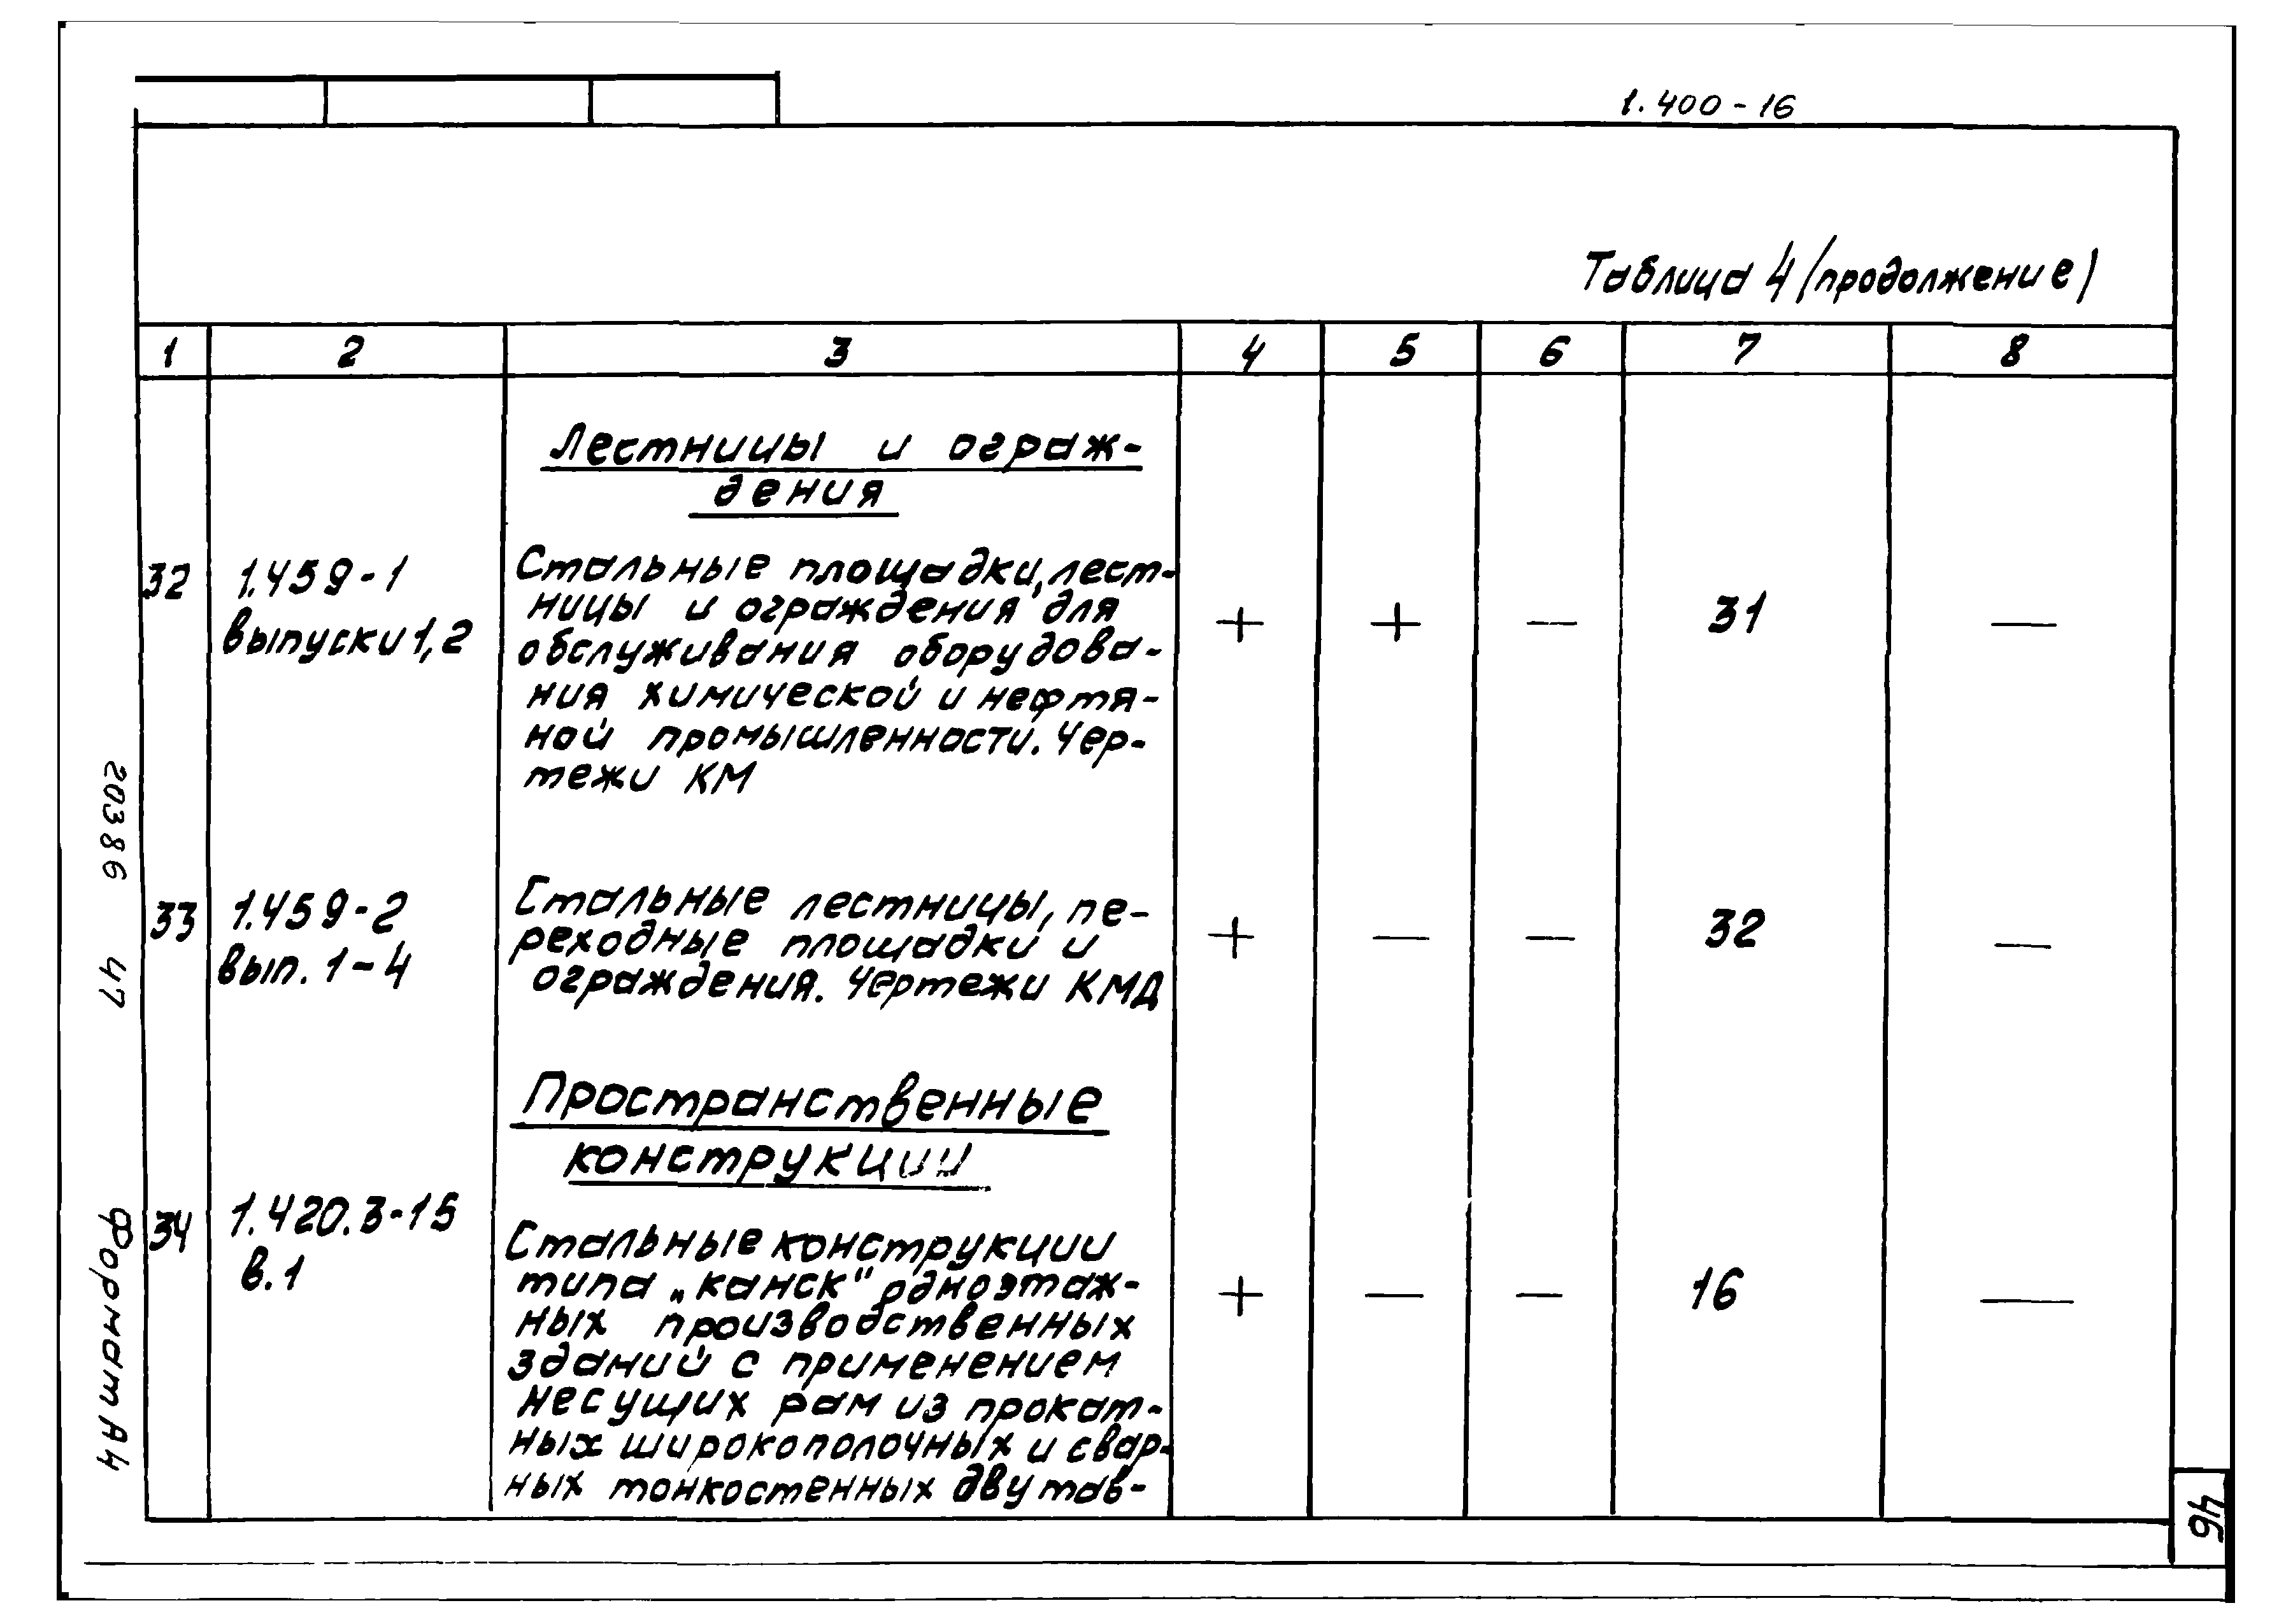 1.400-16
Таблица 4 (продолжение)
1 2 3 4 5 6 7 8
Лестницы и ограж-
дения
32 1.459-1
выпуски 1,2
Стальные площадки, лест-
ницы и ограждения для
обслуживания оборудова-
ния химической и нефтя-
ной промышленности. Чер-
тежи КМ
+ + — 31 —
33 1.459-2
вып. 1-4
Стальные лестницы, пе-
реходные площадки и
ограждения. Чертежи КМД
+ — — 32 —
Пространственные
конструкции
34 1.420.3-15
в.1
Стальные конструкции
типа „канск" одноэтаж-
ных производственных
зданий с применением
несущих рам из прокат-
ных широкополочных и свар-
ных тонкостенных двутав-
+ — — 16 —
20386 47
Формат А4
46